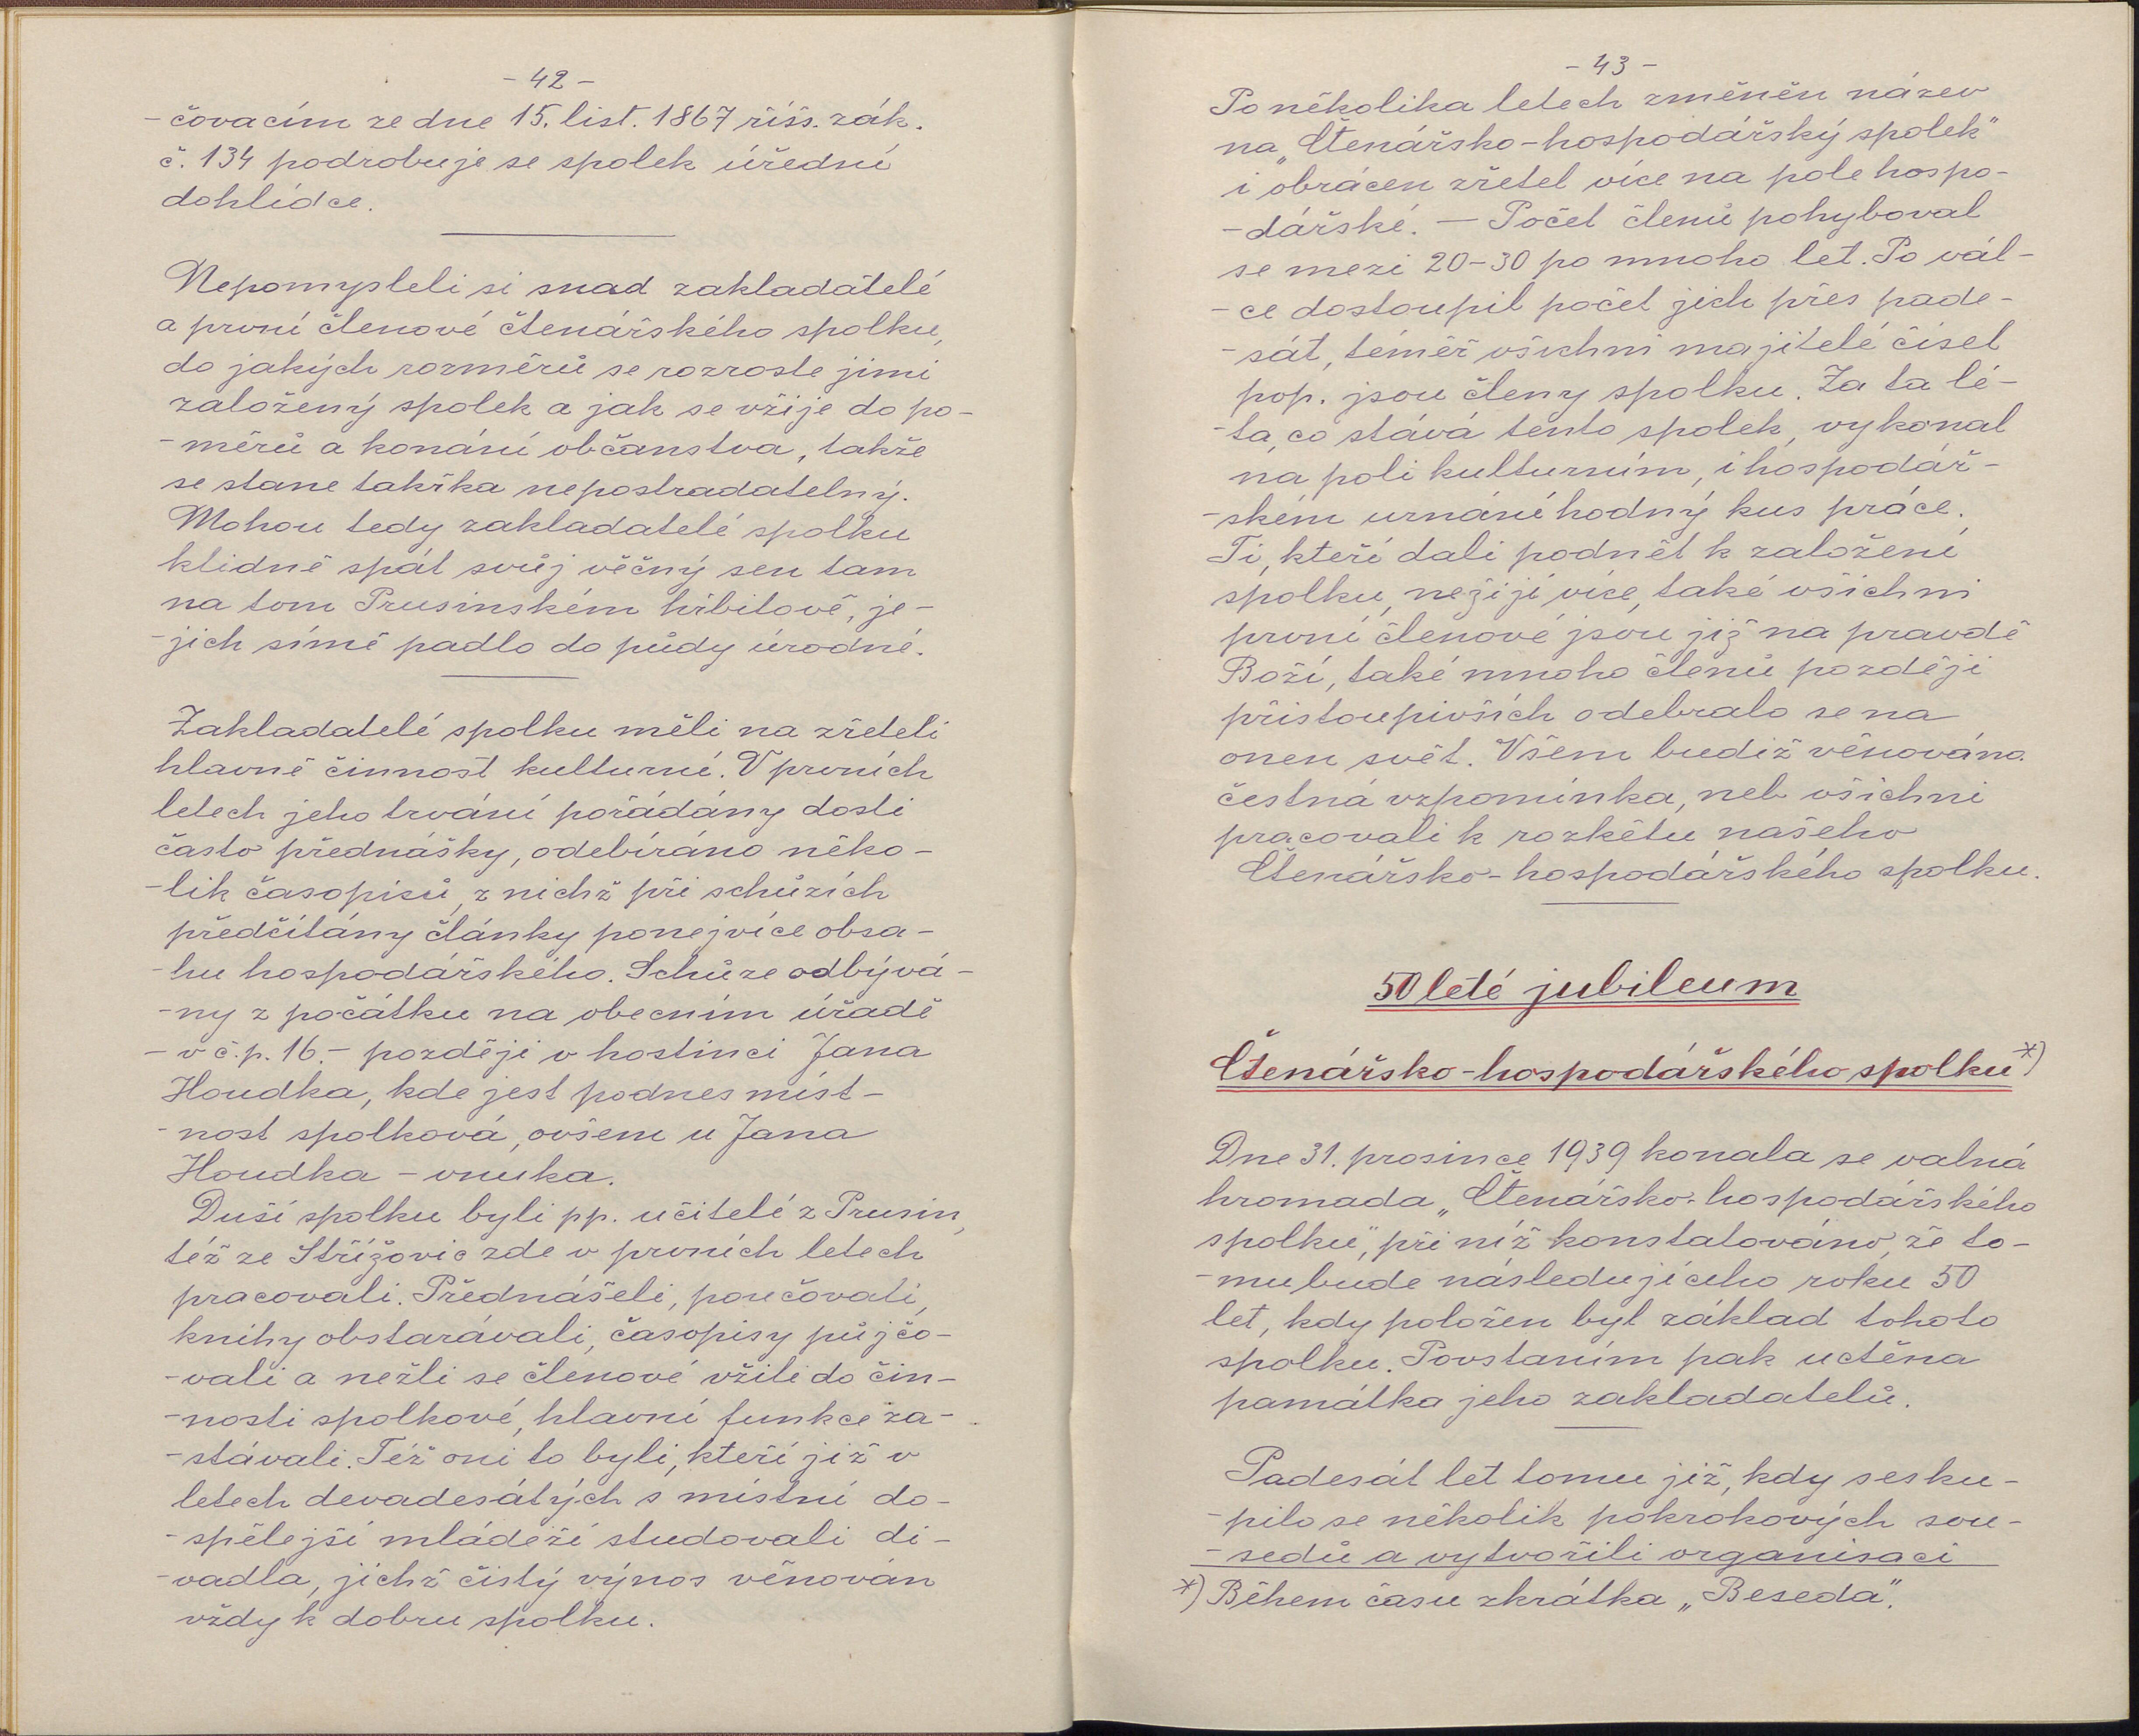 - 42 -
-čovacím ze dne 15. list. 1867 říšs. zák.
č. 134 podrobuje se spolek úřední
dohlídce.
Nepomysleli si snad zakladatelé
a první členové čtenářského spolku,
do jakých rozměrů se rozroste jimi
založený spolek a jak se vžije do po-
-měrů a konání občanstva, takže
se stane takřka nepostradatelný.
Mohou tedy zakladatelé spolku
klidně spát svůj věčný sen tam
na tom Prusinském hřbitově, je-
-jich símě padlo do půdy úrodné.
Zakladatelé spolku měli na zřeteli
hlavně činnost kulturní. V prvních
letech jeho trvání pořádány dosti
často přednášky, odebíráno něko-
-lik časopisů, z nichž při schůzích
předčítány články ponejvíce obsa-
-hu hospodářského. Schůze odbývá-
-ny z počátku na obecním úřadě
- v č.p. 16.- později v hostinci Jana
Houdka, kde jest podnes míst-
-nost spolková, ovšem u Jana
Houdka - vnuka.
Duší spolku byli pp. učitelé z Prusin,
též ze Střížovic zde v prvních letech
pracovali. Přednášeli, poučovali,
knihy obstarávali, časopisy půjčo-
-vali a nežli se členové vžili do čin-
-nosti spolkové, hlavní funkce za-
-stávali. Též oni to byli, kteří již v
letech devadesátých s místní do-
-spělejší mládeží studovali di-
-vadla, jichž čistý výnos věnován
vždy k dobru spolku.
- 43 -
Po několika letech změněn název
na „Čtenářsko-hospodářský spolek"
i obrácen zřetel více na pole hospo-
-dářské. — Počet členů pohyboval
se mezi 20-30 po mnoho let. Po vál-
-ce dostoupil počet jich přes pade-
-sát, téměř všichni majitelé čísel
pop. jsou členy spolku. Za ta lé-
-ta, co stává tento spolek, vykonal
na poli kulturním, i hospodář-
-ském uznání hodný kus práce.
Ti, kteří dali podnět k založení
spolku, nežijí více, také všichni
první členové jsou již na pravdě
Boží, také mnoho členů později
přistoupivších odebralo se na
onen svět. Všem budiž věnována
čestná vzpomínka, neb všichni
pracovali k rozkětu našeho
Čtenářsko-hospodářského spolku.
50 leté jubileum
Čtenářsko-hospodářského spolku *)
Dne 31. prosince 1939 konala se valná
hromada „Čtenářsko-hospodářského
spolku", při níž konstatováno, že to-
-mu bude následujícího roku 50
let, kdy položen byl základ tohoto
spolku. Povstaním pak uctěna
památka jeho zakladatelů.
Padesát let tomu již, kdy sesku-
-pilo se několik pokrokových sou-
-sedů a vytvořili organisaci
*) Během času zkrátka „Beseda".